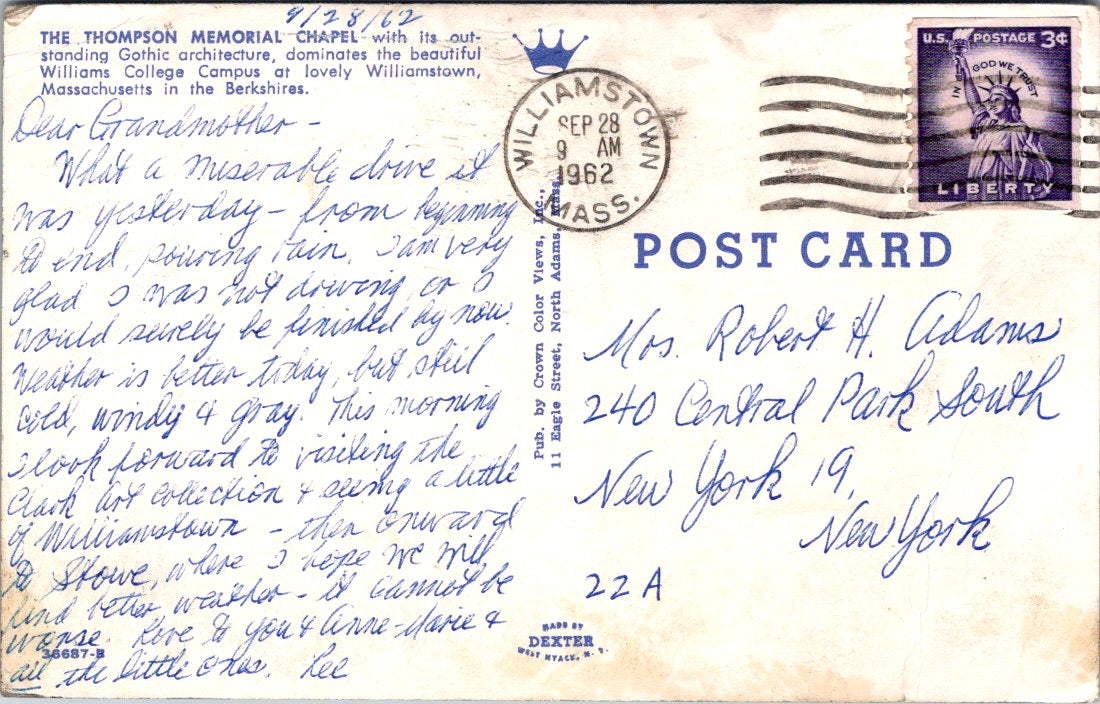 9/28/62
THE THOMPSON MEMORIAL CHAPEL with its out-
standing Gothic architecture, dominates the beautiful
Williams College Campus at lovely Williamstown,
Massachusetts in the Berkshires.
Dear Grandmother -
What a miserable drive it
was yesterday - from beginning
to end, pouring rain. I am very
glad I was not driving, or I
would surely be finished by now.
Weather is better today, but still
cold, windy & gray. This morning
I look forward to visiting the
Clark Art Collection & seeing a little
of Williamstown - then onward
to Stowe, where I hope we will
find better weather - it cannot be
worse. Love to you & Anne-Marie &
all the little ones. Lee
36687-B
Pub. by Crown Color Views, Inc.,
11 Eagle Street, North Adams, Mass.
WILLIAMSTOWN
SEP 28
9 AM
1962
MASS.
U.S. POSTAGE 3¢
IN GOD WE TRUST
LIBERTY
POST CARD
Mrs. Robert H. Adams
240 Central Park South
New York 19,
New York
22 A
MADE BY
DEXTER
WEST NYACK, N. Y.